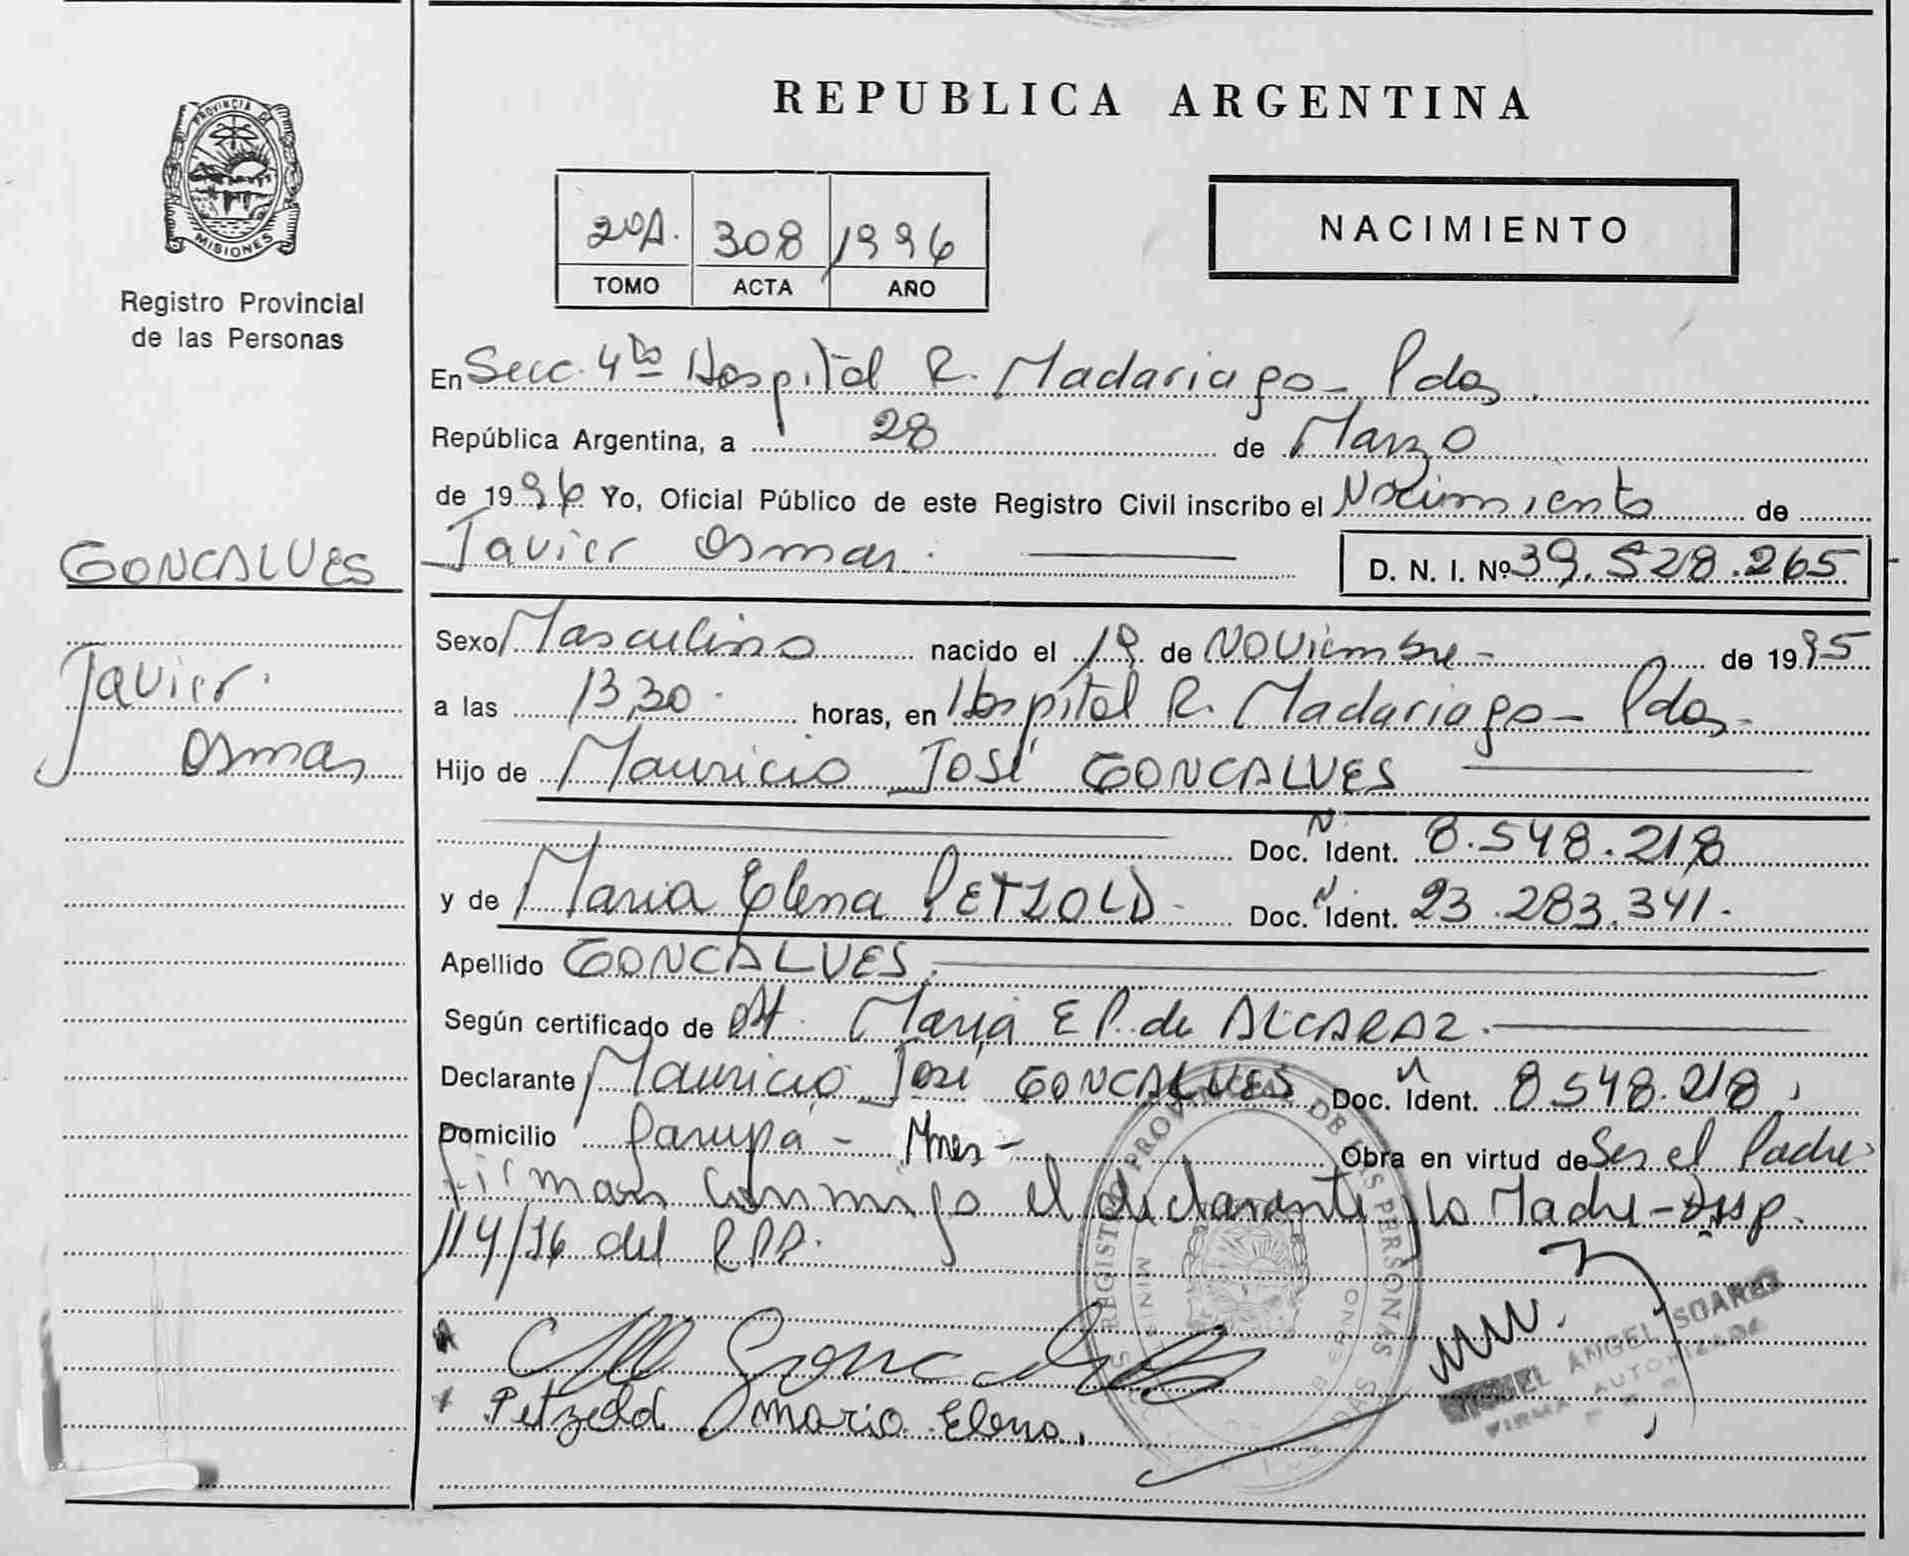 PROVINCIA DE
MISIONES
Registro Provincial
de las Personas
GONCALVES
Javier
Osmar
REPUBLICA ARGENTINA
20A. 308 1996
TOMO ACTA AÑO
NACIMIENTO
En Secc. 4ta Hospital R. Madariaga - Pdas.
República Argentina, a 28 de Marzo
de 1996 Yo, Oficial Público de este Registro Civil inscribo el Nacimiento de
Javier Osmar. D. N. I. Nº 39.528.265
Sexo Masculino nacido el 19 de Noviembre - de 1995
a las 13,30 horas, en Hospital R. Madariaga - Pdas -
Hijo de Mauricio José GONCALVES
Doc. N. Ident. 8.548.218
y de Maria Elena PETZOLD - Doc. N Ident. 23.283.341.
Apellido GONCALVES.
Según certificado de Ob. Maria E P. de ALCARAZ.
Declarante Mauricio José GONCALVES Doc. N Ident. 8.548.218,
Domicilio Garupá - Mnes - Obra en virtud de Ser el Padre
firman conmigo el declarante y la Madre - Disp.
114/96 del RPP.
Petzold Maria Elena.
REGISTRO PROVINCIAL DE LAS PERSONAS
MIGUEL ANGEL SUAREZ
FIRMA AUTORIZADA